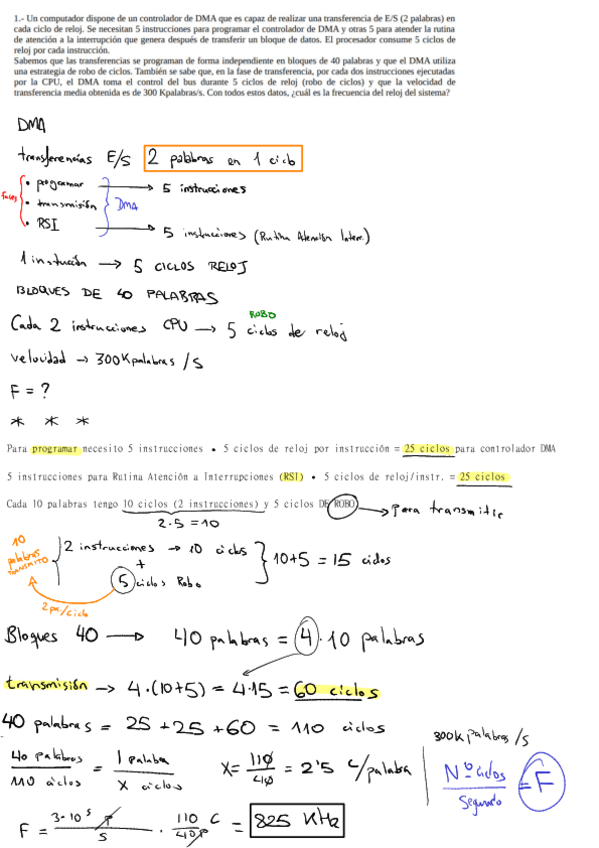 1.- Un computador dispone de un controlador de DMA que es capaz de realizar una transferencia de E/S (2 palabras) en
cada ciclo de reloj. Se necesitan 5 instrucciones para programar el controlador de DMA y otras 5 para atender la rutina
de atención a la interrupción que genera después de transferir un bloque de datos. El procesador consume 5 ciclos de
reloj por cada instrucción.
Sabemos que las transferencias se programan de forma independiente en bloques de 40 palabras y que el DMA utiliza
una estrategia de robo de ciclos. También se sabe que, en la fase de transferencia, por cada dos instrucciones ejecutadas
por la CPU, el DMA toma el control del bus durante 5 ciclos de reloj (robo de ciclos) y que la velocidad de
transferencia media obtenida es de 300 Kpalabras/s. Con todos estos datos, ¿cuál es la frecuencia del reloj del sistema?
DMA
transferencias E/S 2 palabras en 1 ciclo
fases
• programar → 5 instrucciones
• transmisión DMA
• RSI → 5 instrucciones (Rutina Atención Interr.)
1 instrucción → 5 CICLOS RELOJ
BLOQUES DE 40 PALABRAS
ROBO
Cada 2 instrucciones CPU → 5 ciclos de reloj
velocidad → 300Kpalabras /s
F = ?
* * *
Para programar necesito 5 instrucciones • 5 ciclos de reloj por instrucción = 25 ciclos para controlador DMA
5 instrucciones para Rutina Atención a Interrupciones (RSI) • 5 ciclos de reloj/instr. = 25 ciclos
Cada 10 palabras tengo 10 ciclos (2 instrucciones) y 5 ciclos DE ROBO → para transmitir
2·5 =10
10 palabras TRANSMITO
2 instrucciones → 10 ciclos
+
5 ciclos Robo
10+5 = 15 ciclos
2pa/ciclo
Bloques 40 → 40 palabras = 4·10 palabras
transmisión → 4·(10+5) = 4·15 = 60 ciclos
40 palabras = 25 +25 +60 = 110 ciclos
300K palabras /s
40 palabras / 110 ciclos = 1 palabra / X ciclos
X= 110/40 = 2'5 c/palabra
Nº ciclos / Segundo = F
F = 3·10⁵ p / s · 110 c / 40 p = 825 KHz